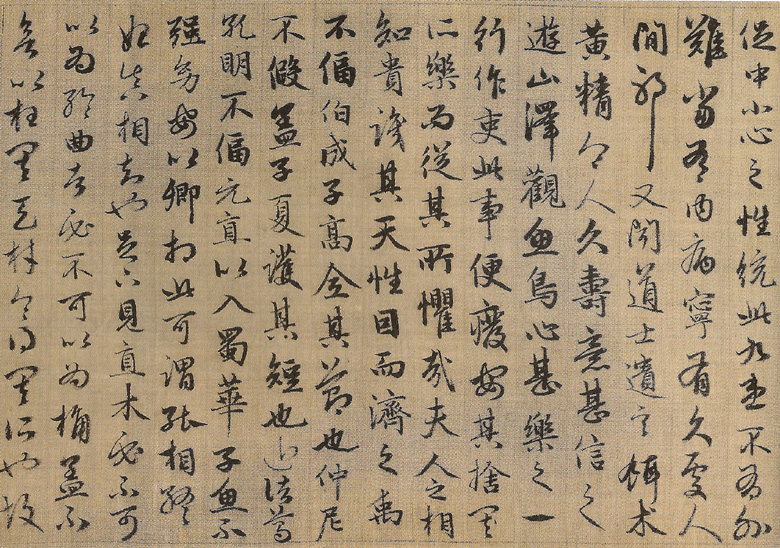 促中小心之性統此九患不有外
難當有內病寧有久處人
間邪又聞道士遺言餌术
黃精令人久壽意甚信之
遊山澤觀魚鳥心甚樂之一
行作吏此事便癈安其捨其
所樂而從其所懼哉夫人之相
知貴識其天性因而濟之禹
不偪伯成子高全其節也仲尼
不假蓋子夏護其短也近諸葛
孔明不偪元直以入蜀華子魚不
强幼安以卿相此可謂能相終
始真相知也足下見直木必不可
以為輪曲者必不可以為桷蓋不
欲以枉其天材令得其所也故